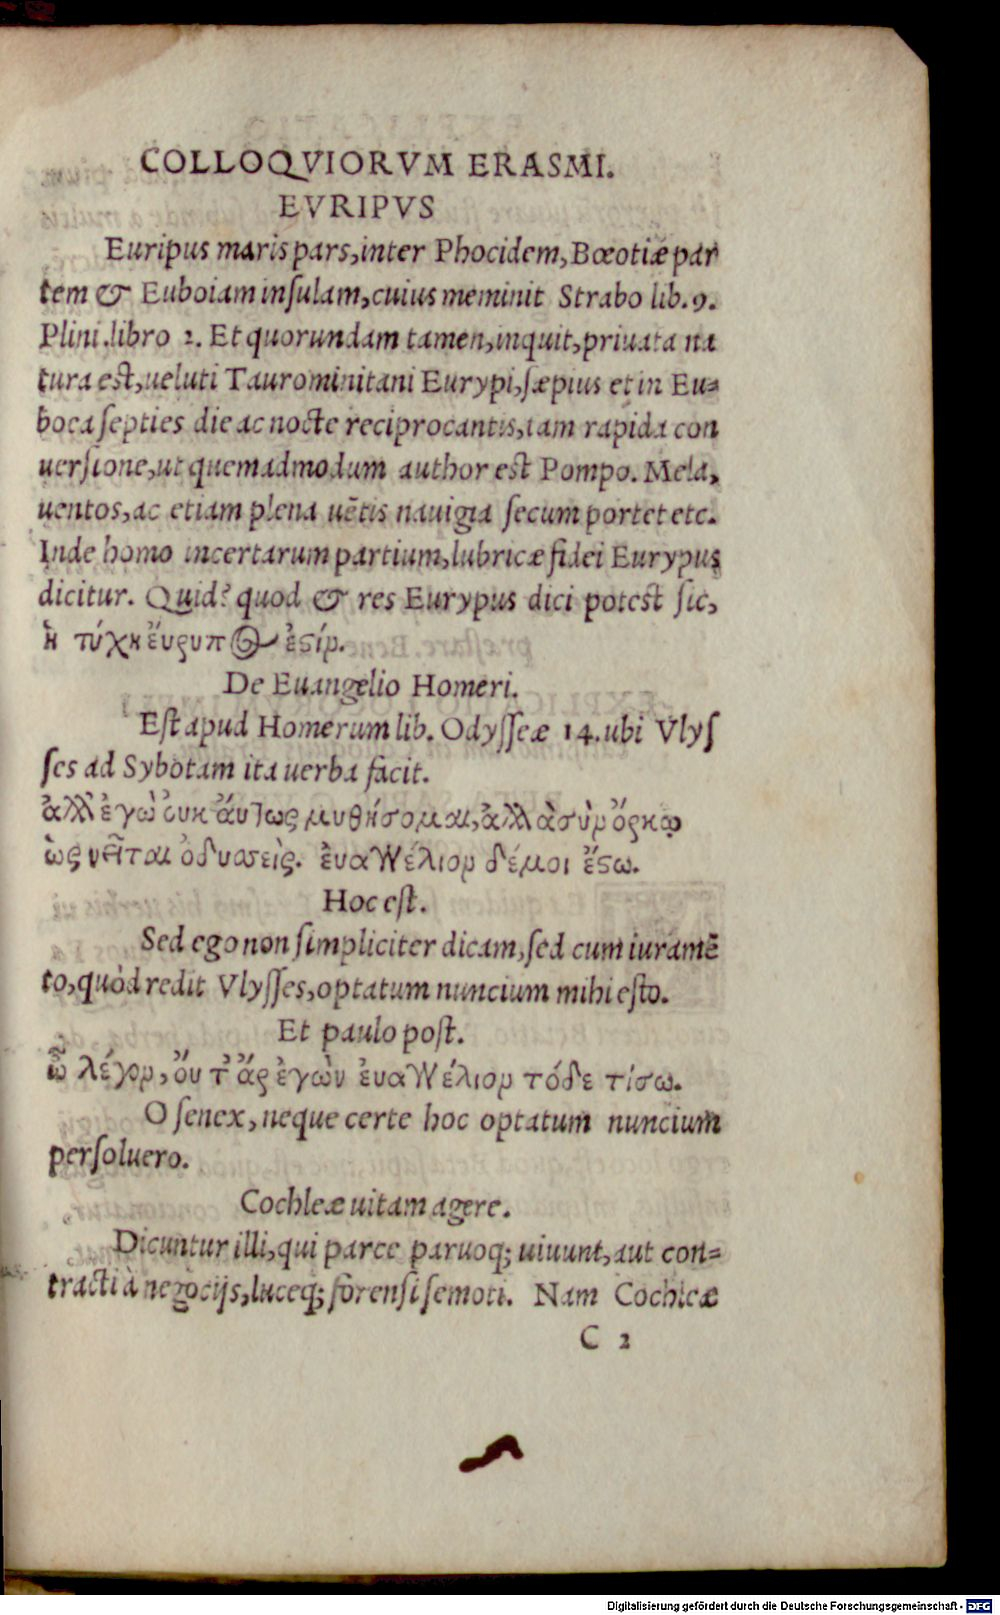 COLLOQVIORVM ERASMI.
EVRIPVS
Euripus maris pars, inter Phocidem, Bœotiæ par
tem & Euboiam insulam, cuius meminit Strabo lib. 9.
Plini. libro 2. Et quorundam tamen, inquit, priuata na
tura est, ueluti Taurominitani Eurypi, sæpius et in Eu-
boca septies die ac nocte reciprocantis, tam rapida con
uersione, ut quemadmodum author est Pompo. Mela,
uentos, ac etiam plena uẽtis nauigia secum portet etc.
Inde homo incertarum partium, lubricæ fidei Eurypus
dicitur. Quid? quod & res Eurypus dici potest sic,
ἡ τύχη ἔυρυπος ἐστίν.
De Euangelio Homeri.
Est apud Homerum lib. Odysseæ 14. ubi Vlys
ses ad Sybotam ita uerba facit.
ἀλλ' ἐγὼ ὀυκ ἄυτως μυθήσομαι, ἀλλὰ σὺν ὅρκῳ
ὡς νεῖται ὀδυσεὶς. ἐυαγγέλιον δέμοι ἔστω.
Hoc est.
Sed ego non simpliciter dicam, sed cum iuramẽ
to, quòd redit Vlysses, optatum nuncium mihi esto.
Et paulo post.
ὦ λέγον, ὄυ τ' ἄρ ἐγὼν ἐυαγγέλιον τόδε τίσω.
O senex, neque certe hoc optatum nuncium
persoluero.
Cochleæ uitam agere.
Dicuntur illi, qui parce paruoq; uiuunt, aut con-
tracti à negocijs, luceq; forensi semoti. Nam Cochleæ
C 2
Digitalisierung gefördert durch die Deutsche Forschungsgemeinschaft - DFG